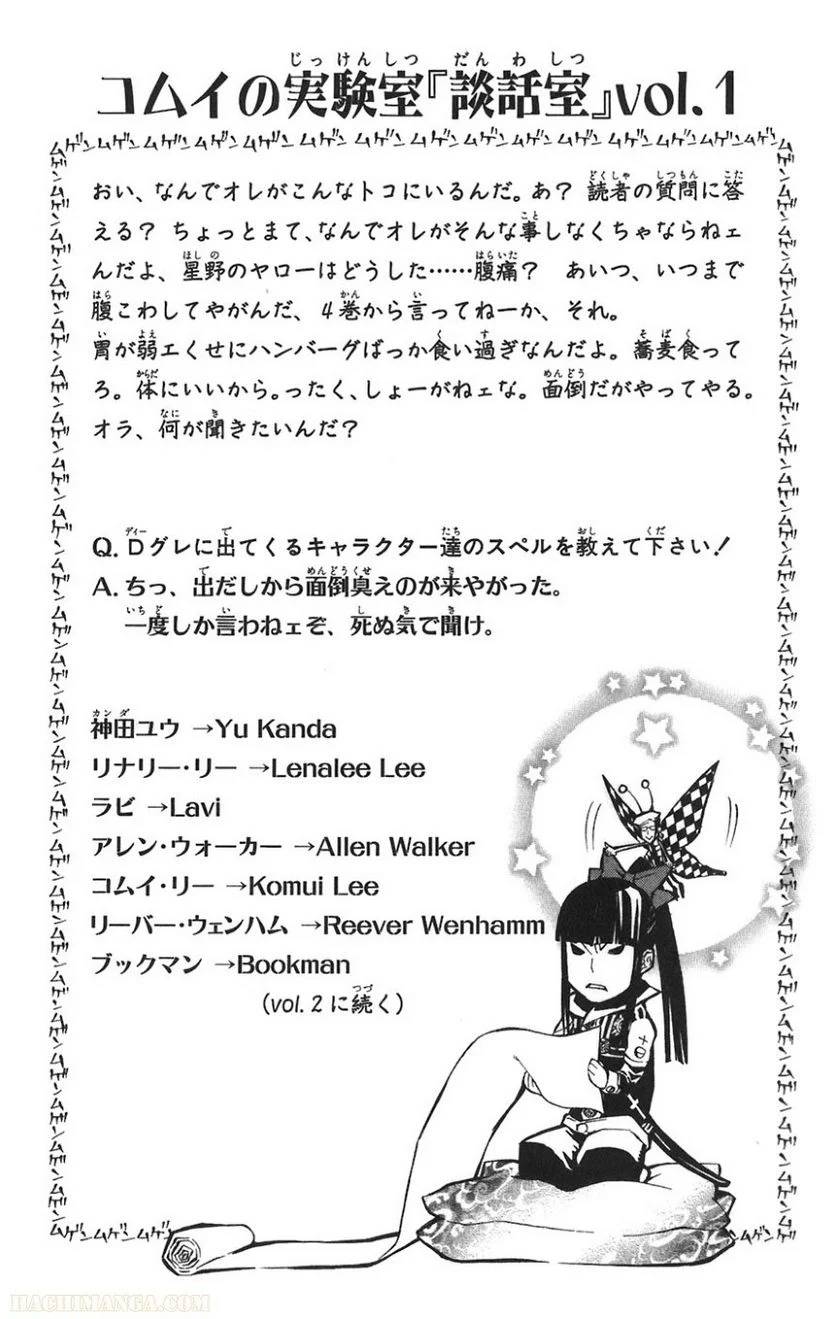 コムイの実験室『談話室』vol.1
ムゲンムゲンムゲンムゲンムゲンムゲンムゲンムゲンムゲンムゲンムゲンムゲンムゲンムゲンムゲン
おい、なんでオレがこんなトコにいるんだ。あ? 読者の質問に答
える? ちょっとまて、なんでオレがそんな事しなくちゃならねェ
んだよ、星野のヤローはどうした……腹痛? あいつ、いつまで
腹こわしてやがんだ、4巻から言ってねーか、それ。
胃が弱エくせにハンバーグばっか食い過ぎなんだよ。蕎麦食って
ろ。体にいいから。ったく、しょーがねェな。面倒だがやってやる。
オラ、何が聞きたいんだ?
Q. Dグレに出てくるキャラクター達のスペルを教えて下さい!
A. ちっ、出だしから面倒臭えのが来やがった。
一度しか言わねェぞ、死ぬ気で聞け。
神田ユウ →Yu Kanda
リナリー・リー →Lenalee Lee
ラビ →Lavi
アレン・ウォーカー →Allen Walker
コムイ・リー →Komui Lee
リーバー・ウェンハム →Reever Wenhamm
ブックマン →Bookman
(vol.2に続く)
HACHIMANGA.COM